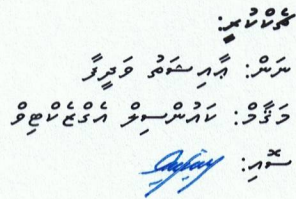 ޗެކްކުރީ:
ނަން: ޢާއިޝަތު ވަދީފާ
މަޤާމް: ކައުންސިލް އެގްޒެކްޓިވް
ސޮއި: